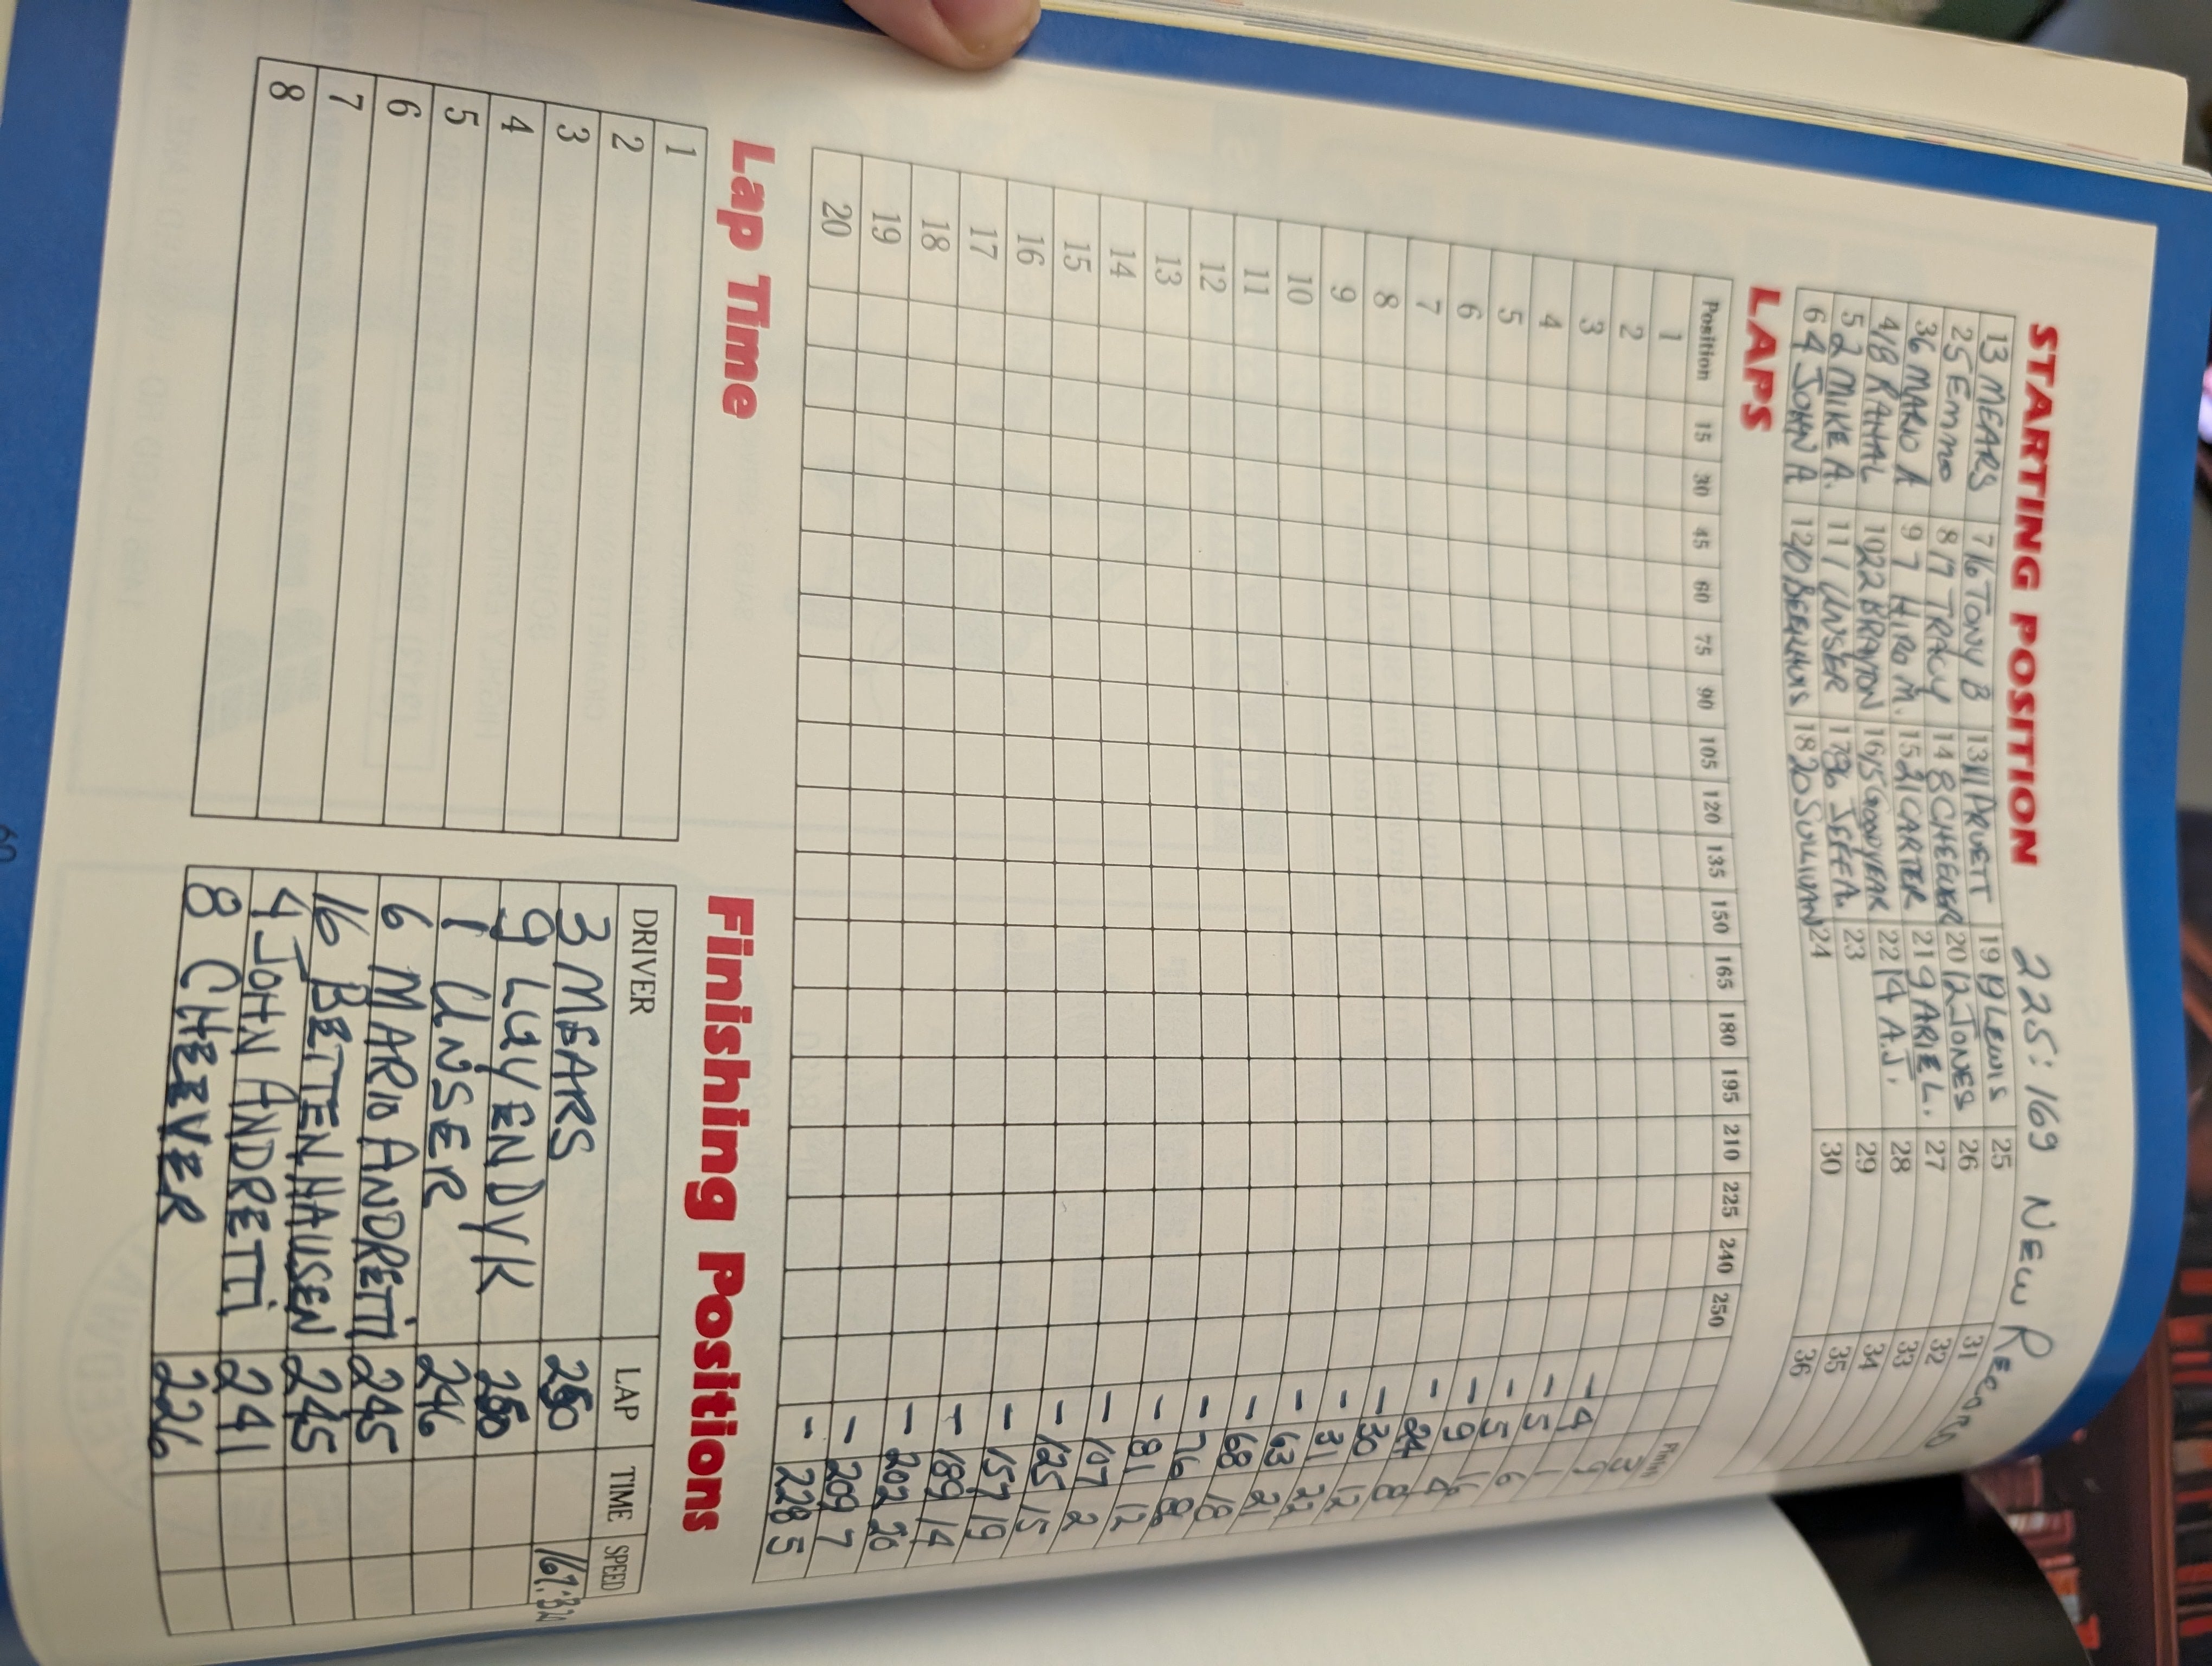 STARTING POSITION 225:169 NEW RECORD
1 3 MEARS 7 16 TONY B 13 11 PRUETT 19 19 LEWIS 25 31
2 5 Emmo 8 17 TRACY 14 8 CHEEVER 20 12 JONES 26 32
3 6 MARIO A 9 7 HIRO M. 15 21 CARTER 21 9 ARIE L. 27 33
4 18 RAHAL 10 22 BRAYTON 16 15 GOODYEAR 22 14 A.J. 28 34
5 2 MIKE A. 11 1 UNSER 17 86 JEFF A. 23 29 35
6 4 JOHN A 12 10 BEEKHUIS 18 20 SULLIVAN 24 30 36
LAPS
Position 15 30 45 60 75 90 105 120 135 150 165 180 195 210 225 240 250
1 3
2 9
3 - 4 1
4 - 5 6
5 - 5 16
6 - 9 4
7 - 24 8
8 - 30 12
9 - 31 22
10 - 63 21
11 - 68 18
12 - 76
13 - 81 12
14 - 107 2
15 - 125 15
16 - 157 19
17 - 189 14
18 - 202 20
19 - 209 7
20 - 228 5
Lap Time
1
2
3
4
5
6
7
8
Finishing Positions
DRIVER LAP TIME SPEED
3 MEARS 250
9 LUYENDYK 250
1 UNSER 246
6 MARIO ANDRETTI 245
16 BETTENHAUSEN 245
4 JOHN ANDRETTI 241
8 CHEEVER 226